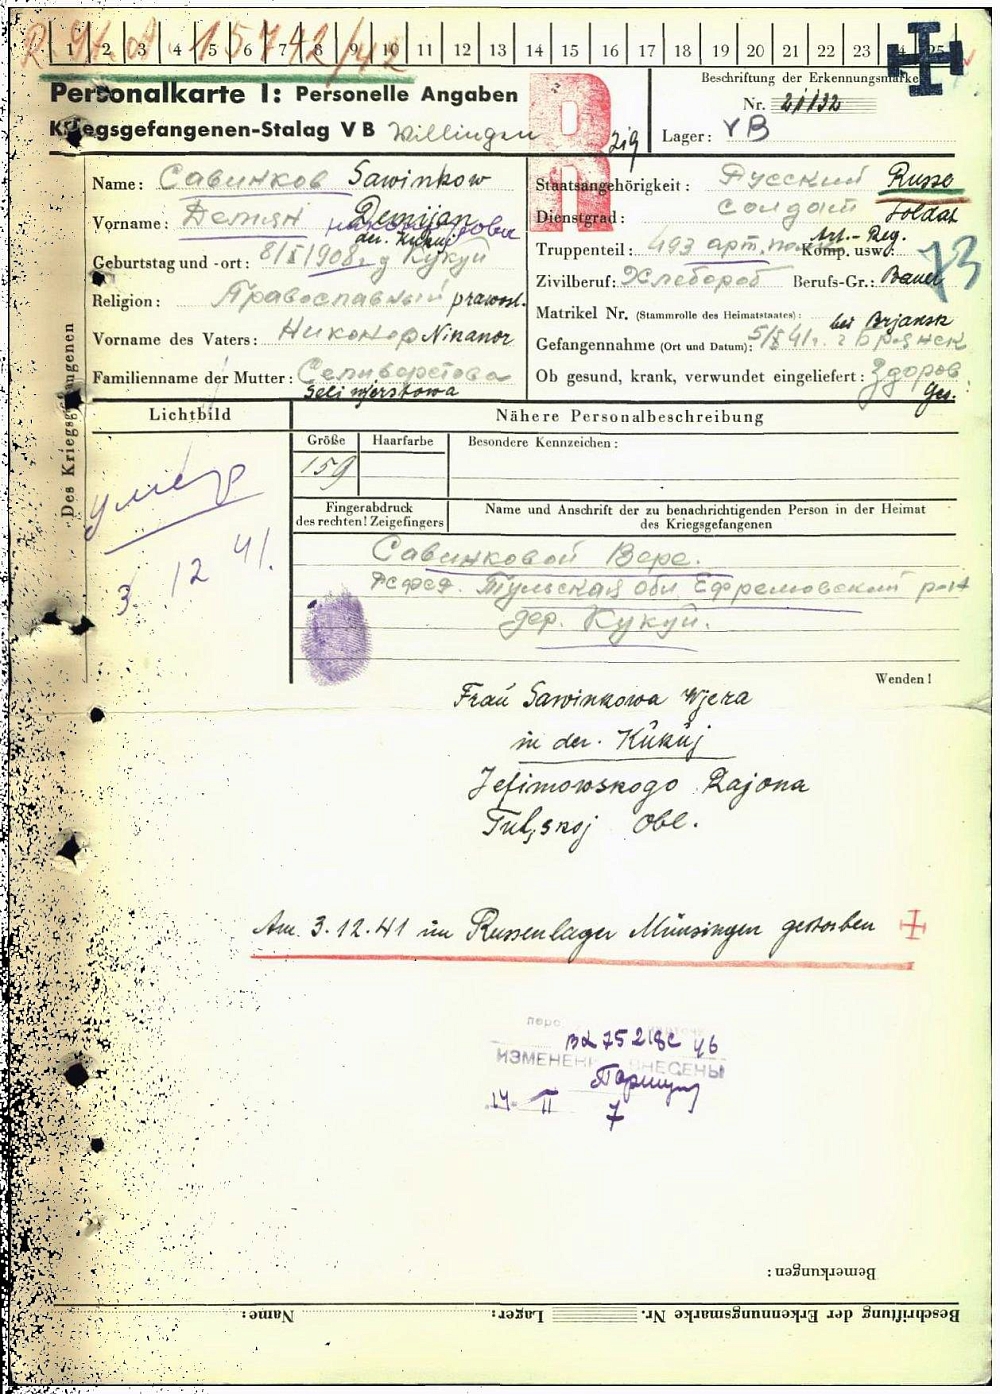 R 91. A 15742/42
1 2 3 4 5 6 7 8 9 10 11 12 13 14 15 16 17 18 19 20 21 22 23 25
Personalkarte I: Personelle Angaben
Kriegsgefangenen-Stalag V B Willingen
Beschriftung der Erkennungsmarke
Nr. 21132
Lager: V B
Des Kriegsgefangenen
Name: Савинков Sawinkow
Vorname: Демян Demijan
der. Kukuj
Geburtstag und -ort: 8/X 1908г д Кукуй
Religion: Православный prawosl.
Vorname des Vaters: Никонор Nikanor
Familienname der Mutter: Селиверстова
Seliwjerstowa
Staatsangehörigkeit: Русский Russe
Dienstgrad: солдат Soldat
Art.-Reg.
Truppenteil: 493 арт. полк Komp. usw.:
Zivilberuf: Хлебороб Berufs-Gr.: Bauer
73
Matrikel Nr. (Stammrolle des Heimatstaates):
bei Brjansk
Gefangennahme (Ort und Datum): 5/X 41г. г Брянск
Ob gesund, krank, verwundet eingeliefert: Здоров
Ges.
Lichtbild
Nähere Personalbeschreibung
Größe Haarfarbe Besondere Kennzeichen:
159
Fingerabdruck
des rechten! Zeigefingers
Name und Anschrift der zu benachrichtigenden Person in der Heimat
des Kriegsgefangenen
умер
3. 12 41.
Савинковой Вере.
РСФСР. Тульская обл Ефремовский р-н
дер. Кукуй.
Wenden!
Frau Sawinkowa Wjera
in der. Kukuj
Jefimowskogo Rajona
Tulskoj Obl.
Am 3.12.41 im Russenlager Münsingen gestorben
ИЗМЕНЕНИЯ ВНЕСЕНЫ
14 II
7
Bemerkungen:
Beschriftung der Erkennungsmarke Nr. Lager: Name: